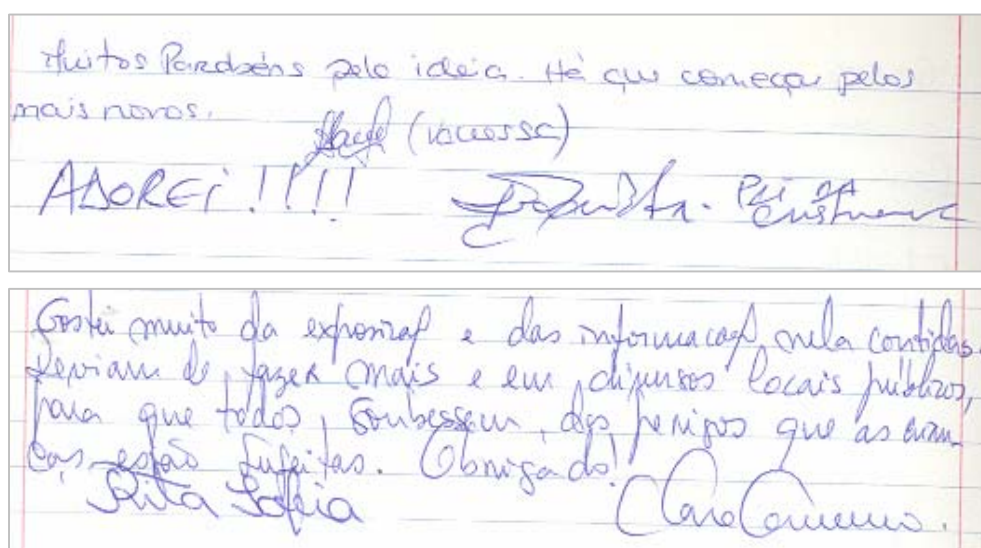 Muitos Parabéns pela ideia. Há que começar pelos
mais novos.
(vanessa)
ADOREi !!!!
Gostei muito da exposição e das informações nela contidas.
Deviam de fazer mais e em diversos locais públicos,
para que todos soubessem, dos perigos que as crian-
ças estão sujeitas. Obrigado!
Rita Sofia